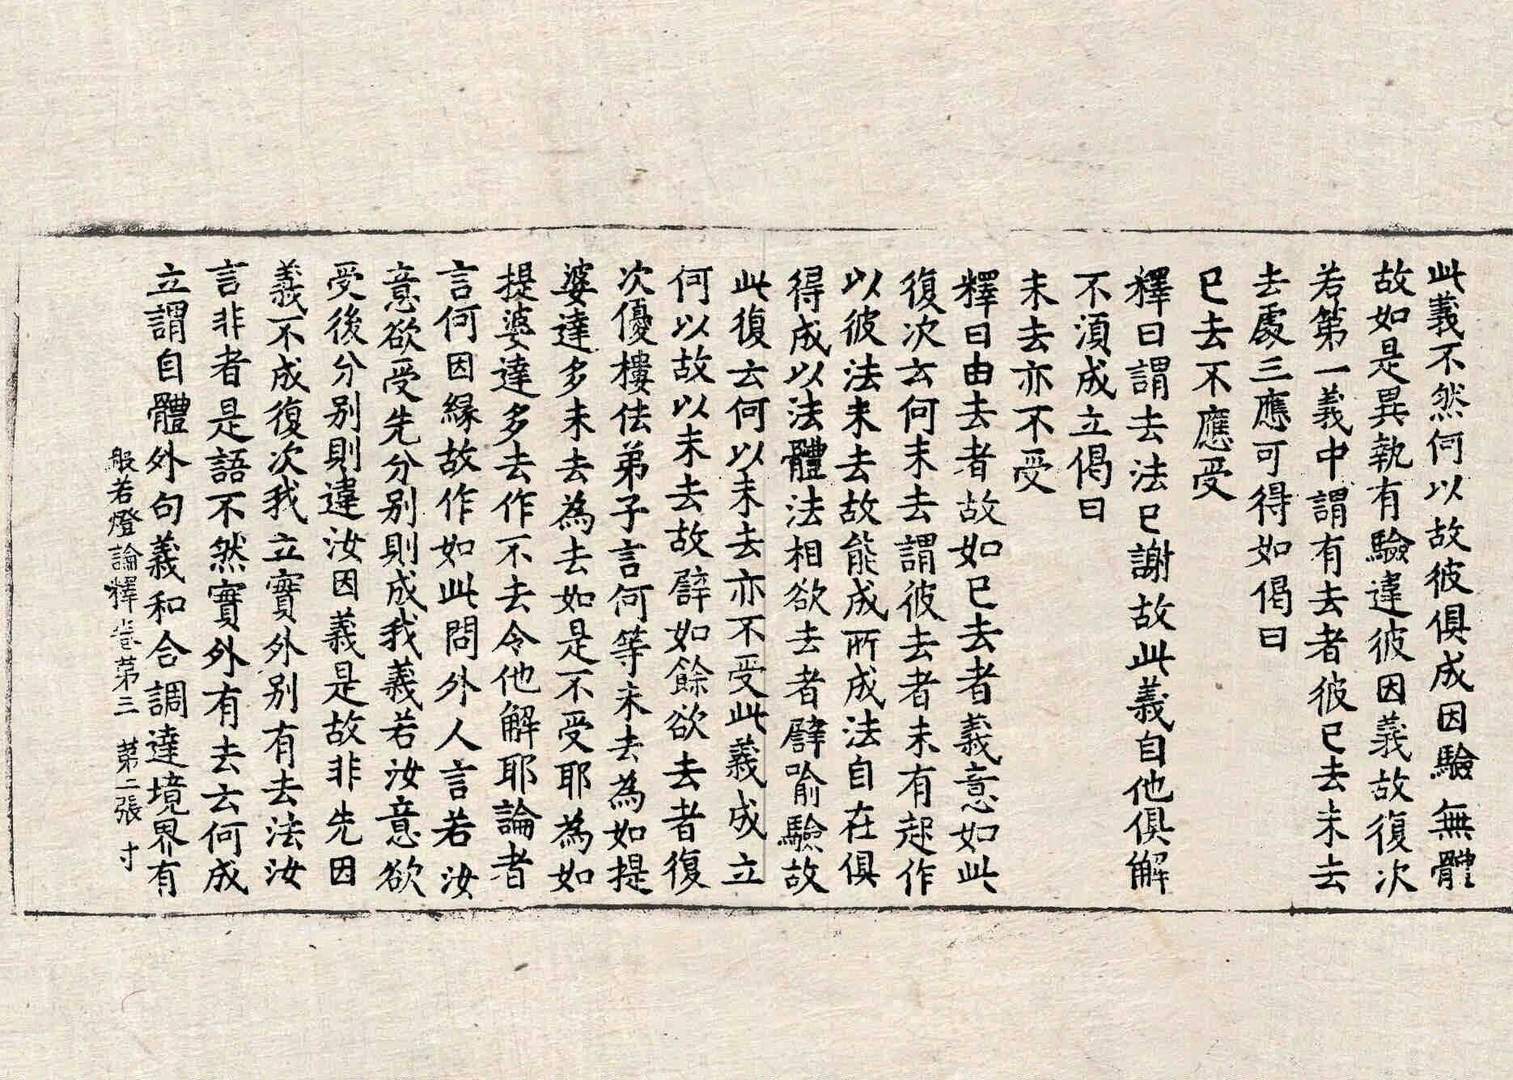 此義不然何以故彼俱成因驗無體
故如是異執有驗違彼因義故復次
若第一義中謂有去者彼已去未去
去處三應可得如偈曰
已去不應受
釋曰謂去法已謝故此義自他俱解
不須成立偈曰
未去亦不受
釋曰由去者故如已去者義意如此
復次云何未去謂彼去者未有起作
以彼法未去故能成所成法自在俱
得成以法體法相欲去者譬喻驗故
此復云何以未去亦不受此義成立
何以故以未去故譬如餘欲去者復
次優樓佉弟子言何等未去為如提
婆達多未去為去如是不受耶為如
提婆達多去作不去令他解耶論者
言何因緣故作如此問外人言若汝
意欲受先分別則成我義若汝意欲
受後分別則違汝因義是故非先因
義不成復次我立實外別有去法汝
言非者是語不然實外有去云何成
立謂自體外句義和合調達境界有
般若燈論釋卷第三 第二張 寸